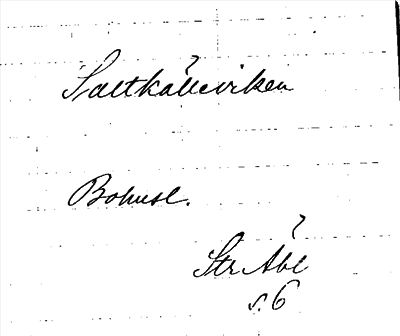 Saltkälleviken
Bohusl.
Str Åbl
s. 6